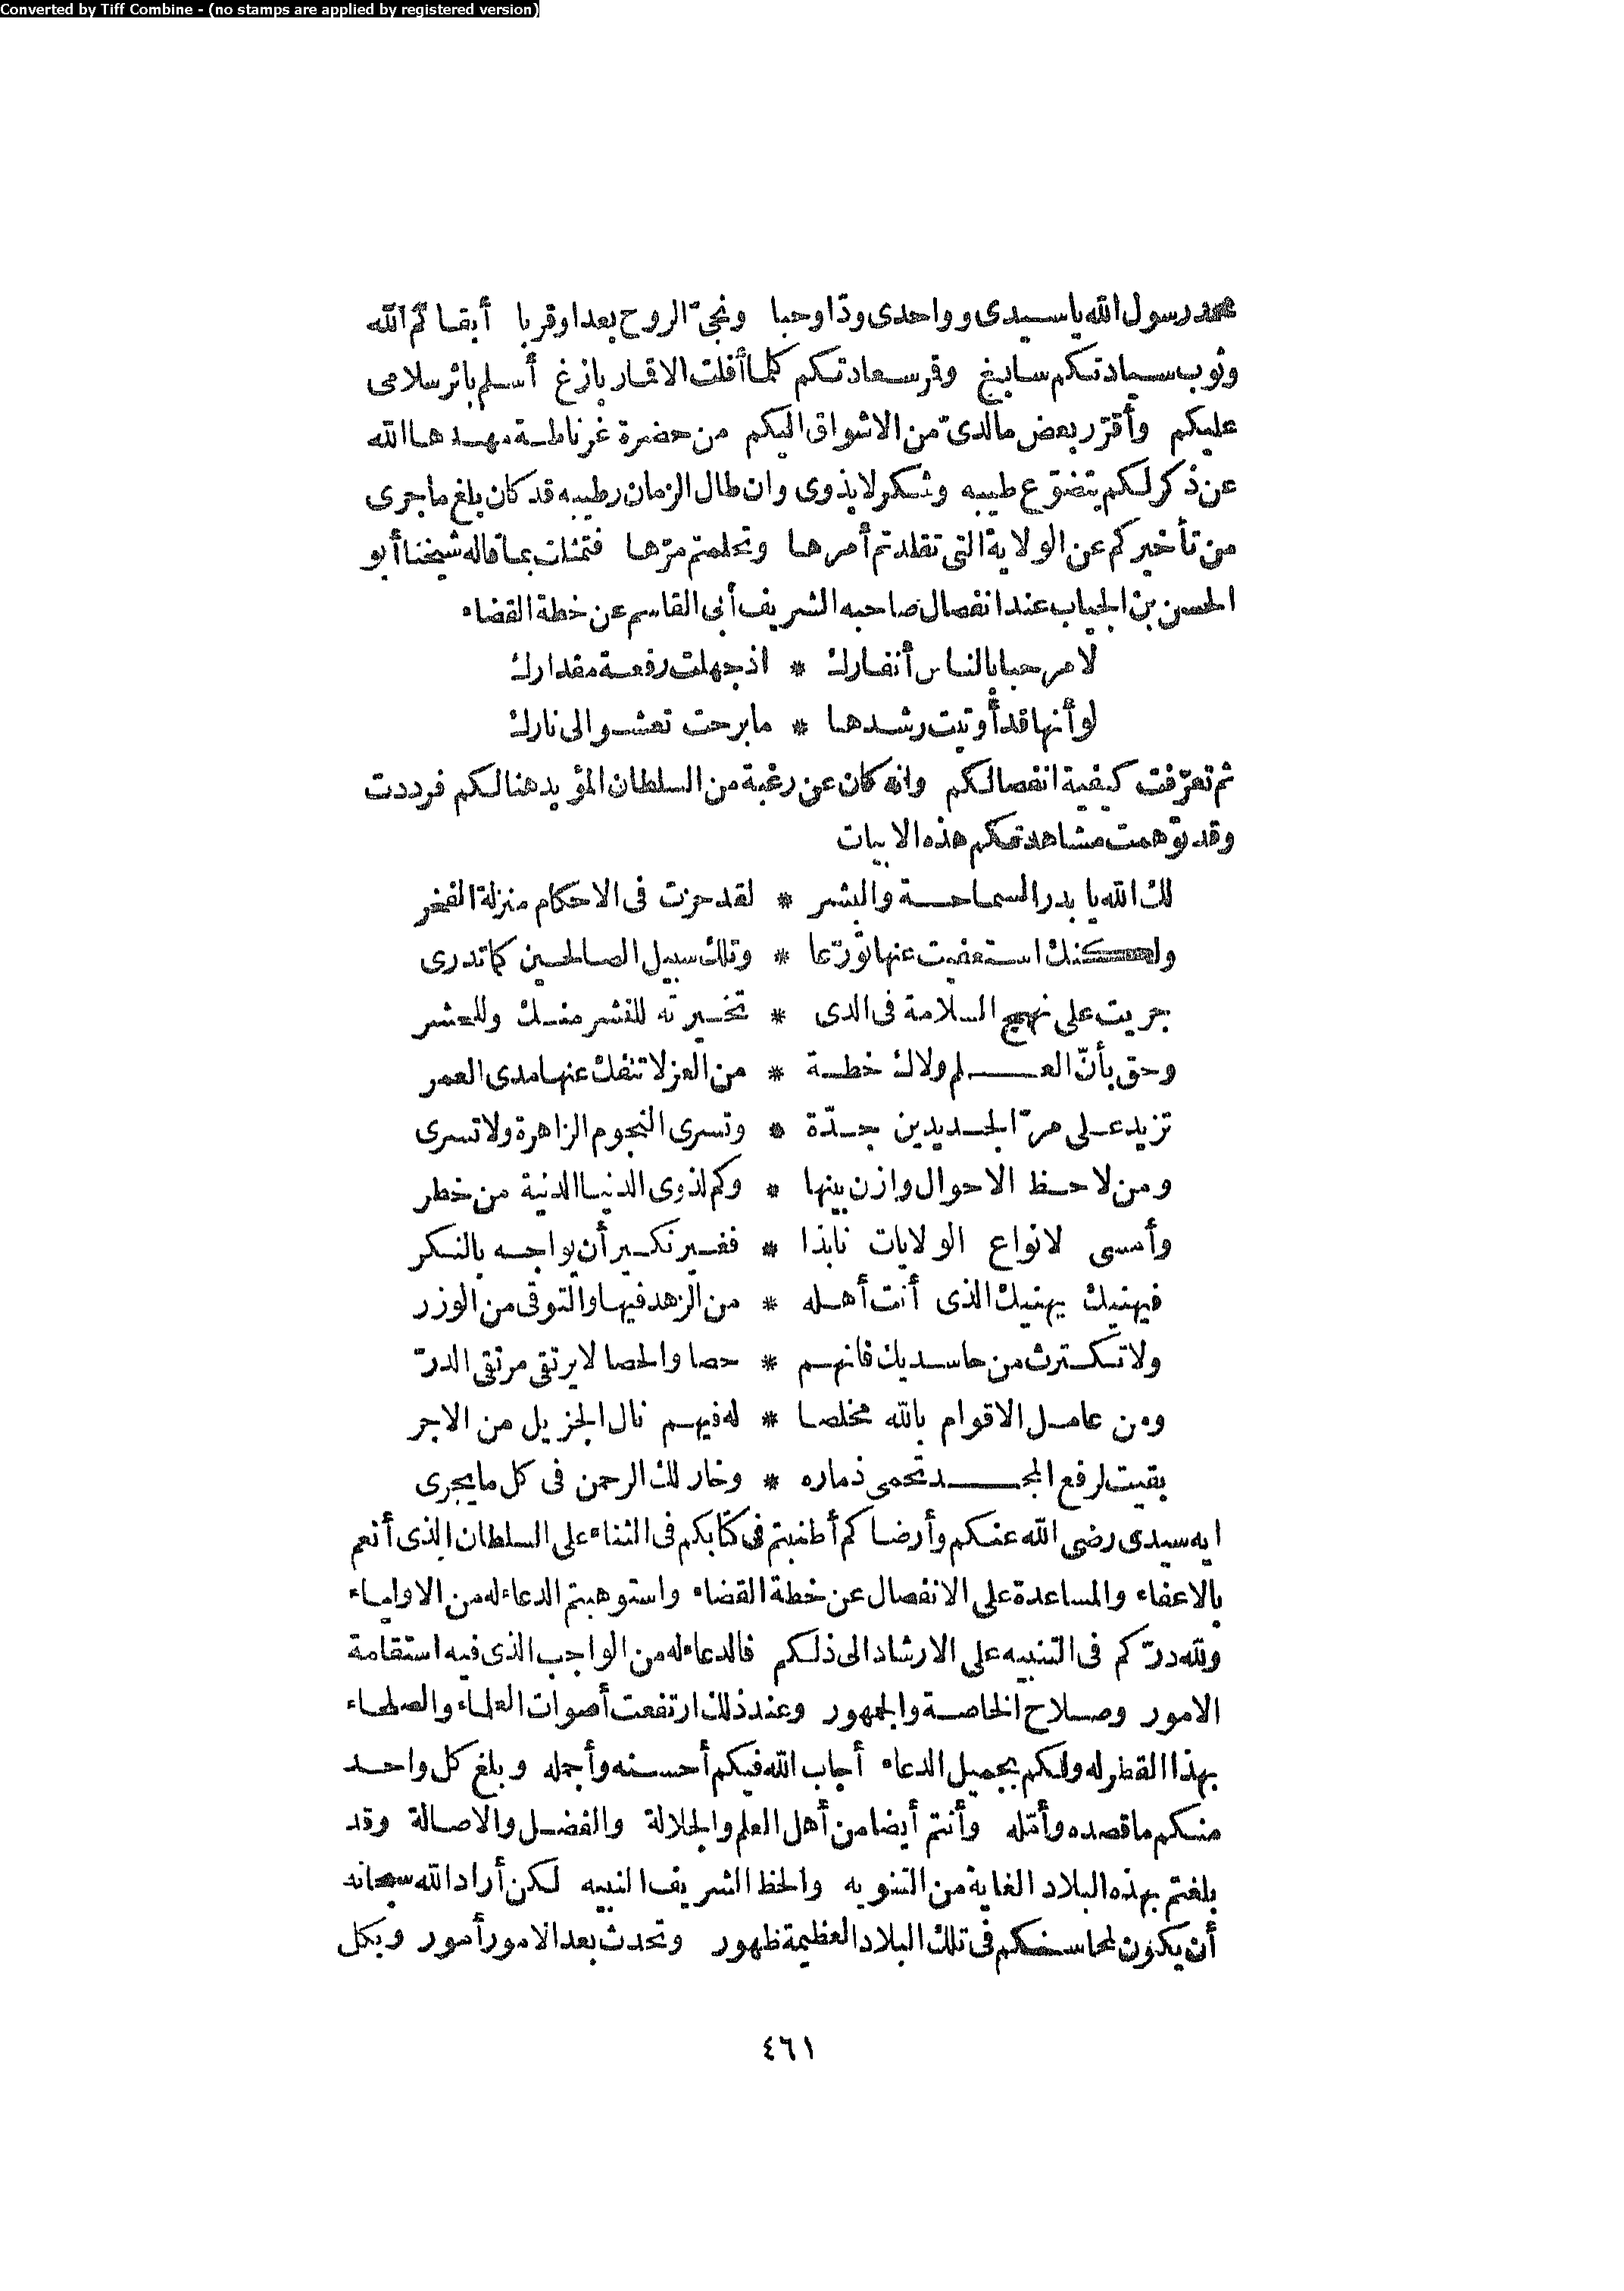 Converted by Tiff Combine - (no stamps are applied by registered version)
محمد رسول الله يا سيدى وواحدى ودّا وحبا ونجىّ الروح بعدا وقربا أبقاكم الله
وثوب سيادتكم سابغ وقر سعادتكم كلما أفلت الاقمار بازغ أسلم بائر سلامى
عليكم وأقرّر بعض مالدىّ من الاشواق اليكم من حضرة غرناطة مهدها الله
عن ذكر لكم يتضوّع طيبه وشكر لا يذوى وان طال الزمان رطيبه قد كان بلغ ما جرى
من تأخيركم عن الولاية التى تقلدتم أمرها وتحلمتم مرّها فتمثلت بما قاله شيخنا أبو
الحسن بن الجياب عند انفصال صاحبه الشريف أبى القاسم عن خطة القضاء
لا مرحبا بالناس أنفارك * اذ جهلت رفعة مقدارك
لو أنها قد أوتيت رشدها * ما برحت تعشو الى نارك
ثم تعرّفت كيفية انفصالكم وانه كان عن رغبة من السلطان المؤيد هنالكم فرددت
وقد توّهمت مشاهدتكم هذه الابيات
لك الله يا بدر السماحة والبشر * لقد حزت فى الاحكام منزلة الفخر
ولكنك استعفيت عنها تورّعا * وتلك سبيل الصالحين كما تدرى
جريت على نهج السلامة فى الدى * تخيرته للنشر منك وللحشر
وحق بأنّ العلم ولاك خطة * من العز لا تنفك عنها مدى العمر
تزيد على مرّ الجديدين جدّة * وتسرى النجوم الزاهرة ولا تسرى
ومن لاحظ الاحوال وازن بينها * وكم لذوى الدنيا الدنية من خطر
وأمسى لانواع الولايات نابذا * فغير نكير أن يواجه بالنكر
فيهنيك يهنيك الذى أنت أهله * من الزهد فيها والتوقى من الوزر
ولا تكترث من حاسديك فانهم * حصا والحصا لا يرتقى مرتقى الدرّ
ومن عامل الاقوام بالله مخلصا * له فيهم نال الجزيل من الاجر
بقيت لرفع المجد تحمى ذماره * وخار لك الرحمن فى كل ما يجرى
ايه سيدى رضى الله عنكم وأرضاكم أطنبتم فى كتابكم فى الثناء على السلطان الذى أنعم
بالاعفاء والمساعدة على الانفصال عن خطة القضاء واستوهبتم الدعاء له من الاولياء
ولله درّكم فى التنبيه على الارشاد الى ذلكم فالدعاء له من الواجب الذى فيه استقامة
الامور وصلاح الخاصة والجمهور وعند ذلك ارتفعت أصوات العلماء والصلحاء
بهذا القطر له ولكم بجميل الدعاء أجاب الله فيكم أحسنه وأجمله وبلغ كل واحد
منكم ما قصده وأمّله وأنتم أيضا من أهل العلم والجلالة والفضل والاصالة وقد
بلغتم بهذه البلاد الغاية من التنويه والحظ الشريف النبيه لكن أراد الله سبحانه
أن يكون لمحاسنكم فى تلك البلاد العظيمة ظهور وتحدث بعد الامور أمور وبكل
٤٦١